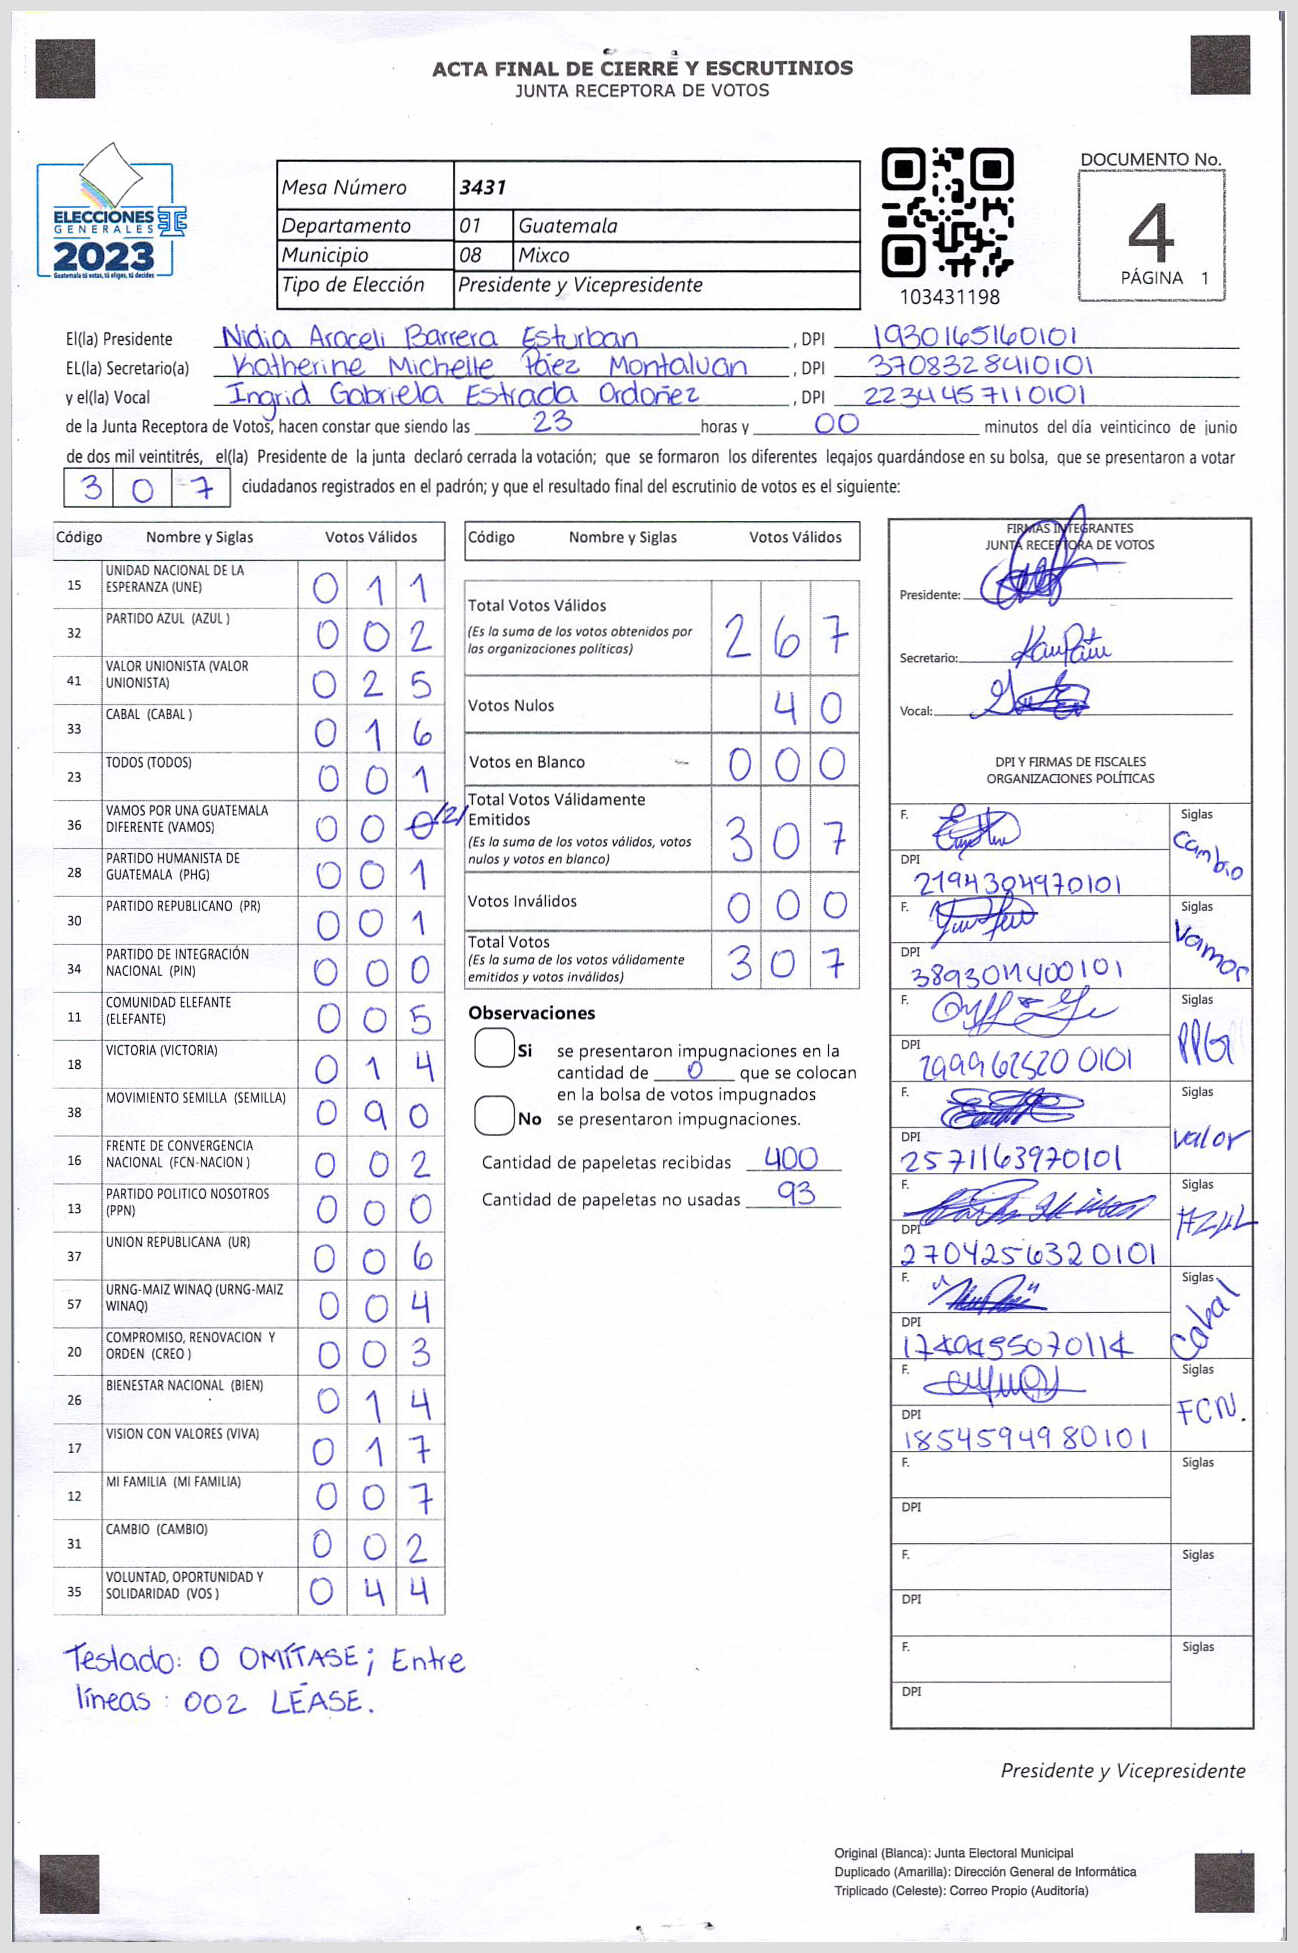 ACTA FINAL DE CIERRE Y ESCRUTINIOS
JUNTA RECEPTORA DE VOTOS
ELECCIONES
GENERALES
2023
Guatemala tú votas, tú eliges, tú decides
Mesa Número 3431
Departamento 01 Guatemala
Municipio 08 Mixco
Tipo de Elección Presidente y Vicepresidente
103431198
DOCUMENTO No.
4
PÁGINA 1
El(la) Presidente Nidia Araceli Barrera Esturban , DPI 1930165160101
EL(la) Secretario(a) Katherine Michelle Páez Montaluan , DPI 3708328410101
y el(la) Vocal Ingrid Gabriela Estrada Ordoñez , DPI 2234457110101
de la Junta Receptora de Votos, hacen constar que siendo las 23 horas y 00 minutos del día veinticinco de junio
de dos mil veintitrés, el(la) Presidente de la junta declaró cerrada la votación; que se formaron los diferentes legajos guardándose en su bolsa, que se presentaron a votar
3 0 7 ciudadanos registrados en el padrón; y que el resultado final del escrutinio de votos es el siguiente:
Código Nombre y Siglas Votos Válidos
15 UNIDAD NACIONAL DE LA ESPERANZA (UNE) 0 1 1
32 PARTIDO AZUL (AZUL ) 0 0 2
41 VALOR UNIONISTA (VALOR UNIONISTA) 0 2 5
33 CABAL (CABAL ) 0 1 6
23 TODOS (TODOS) 0 0 1
36 VAMOS POR UNA GUATEMALA DIFERENTE (VAMOS) 0 0 0 /2/
28 PARTIDO HUMANISTA DE GUATEMALA (PHG) 0 0 1
30 PARTIDO REPUBLICANO (PR) 0 0 1
34 PARTIDO DE INTEGRACIÓN NACIONAL (PIN) 0 0 0
11 COMUNIDAD ELEFANTE (ELEFANTE) 0 0 5
18 VICTORIA (VICTORIA) 0 1 4
38 MOVIMIENTO SEMILLA (SEMILLA) 0 9 0
16 FRENTE DE CONVERGENCIA NACIONAL (FCN-NACION ) 0 0 2
13 PARTIDO POLITICO NOSOTROS (PPN) 0 0 0
37 UNION REPUBLICANA (UR) 0 0 6
57 URNG-MAIZ WINAQ (URNG-MAIZ WINAQ) 0 0 4
20 COMPROMISO, RENOVACION Y ORDEN (CREO ) 0 0 3
26 BIENESTAR NACIONAL (BIEN) 0 1 4
17 VISION CON VALORES (VIVA) 0 1 7
12 MI FAMILIA (MI FAMILIA) 0 0 7
31 CAMBIO (CAMBIO) 0 0 2
35 VOLUNTAD, OPORTUNIDAD Y SOLIDARIDAD (VOS ) 0 4 4
Testado: 0 OMÍTASE; Entre
líneas: 002 LÉASE.
Código Nombre y Siglas Votos Válidos
Total Votos Válidos 2 6 7
(Es la suma de los votos obtenidos por
las organizaciones políticas)
Votos Nulos 4 0
Votos en Blanco 0 0 0
Total Votos Válidamente
Emitidos 3 0 7
(Es la suma de los votos válidos, votos
nulos y votos en blanco)
Votos Inválidos 0 0 0
Total Votos 3 0 7
(Es la suma de los votos válidamente
emitidos y votos inválidos)
Observaciones
Si se presentaron impugnaciones en la
cantidad de 0 que se colocan
en la bolsa de votos impugnados
No se presentaron impugnaciones.
Cantidad de papeletas recibidas 400
Cantidad de papeletas no usadas 93
FIRMAS INTEGRANTES
JUNTA RECEPTORA DE VOTOS
Presidente:
Secretario:
Vocal:
DPI Y FIRMAS DE FISCALES
ORGANIZACIONES POLÍTICAS
F. Siglas Cambio
DPI 2194304970101
F. Siglas Vamos
DPI 3893011400101
F. Siglas PPG
DPI
F. Siglas Valor
DPI 2571163970101
F. Siglas AZUL
DPI 2704256320101
F. Siglas Cabal
DPI
F. Siglas FCN.
DPI 1854594980101
F. Siglas
DPI
F. Siglas
DPI
F. Siglas
DPI
Presidente y Vicepresidente
Original (Blanca): Junta Electoral Municipal
Duplicado (Amarilla): Dirección General de Informática
Triplicado (Celeste): Correo Propio (Auditoría)